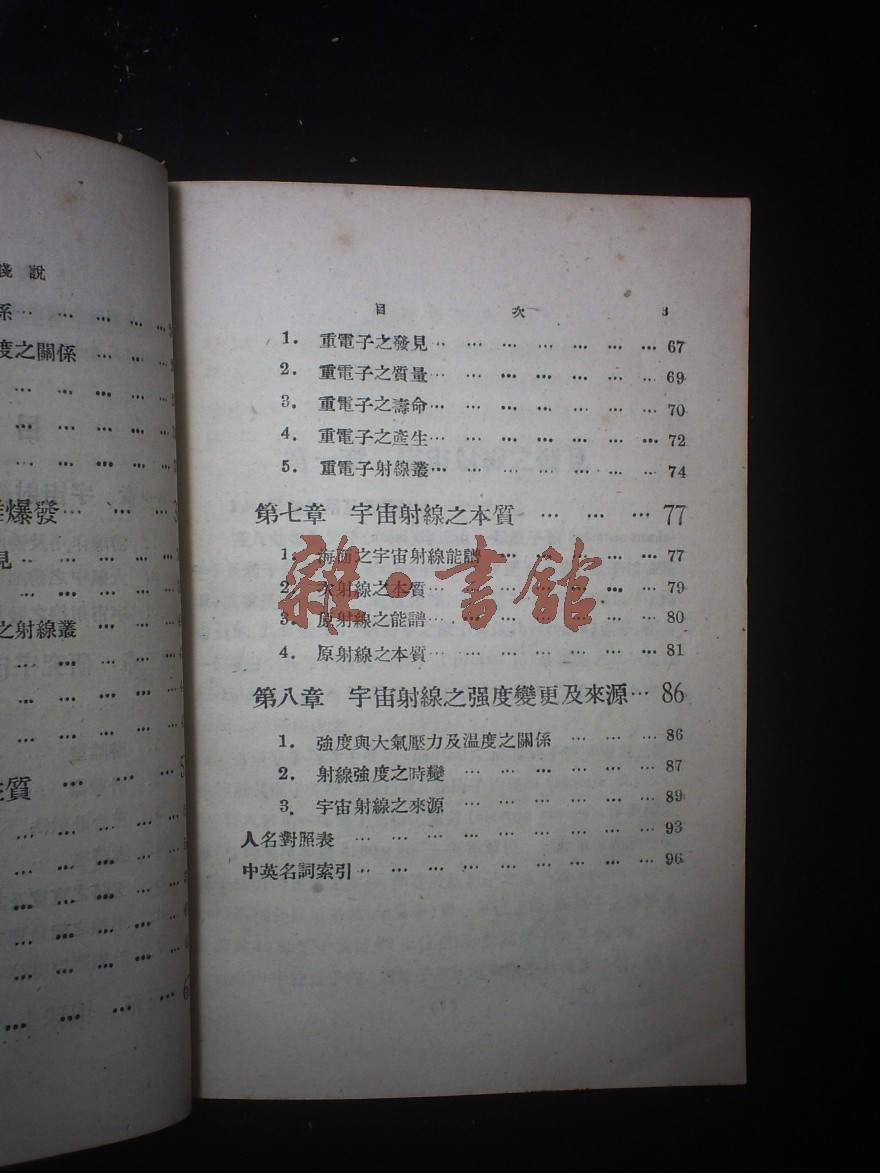 淺說
係… … … … …
度之關係 … … …
爆發 … … … 3
見… … … … …
之射線叢 … … …
質 … … … 5
目 次 3
1. 重電子之發見… … … … … … … … 67
2. 重電子之質量… … … … … … … … 69
3. 重電子之壽命… … … … … … … … 70
4. 重電子之產生… … … … … … … … 72
5. 重電子射線叢… … … … … … … … 74
第七章 宇宙射線之本質 … … … 77
1. 海面之宇宙射線能譜 … … … … … … 77
2. 次射線之本質… … … … … … … … 79
3. 原射線之能譜 … … … … … … … 80
4. 原射線之本質 … … … … … … … 81
第八章 宇宙射線之强度變更及來源… 86
1. 強度與大氣壓力及温度之關係 … … … … 86
2. 射線強度之時變 … … … … … … 87
3. 宇宙射線之來源 … … … … … … 89
人名對照表 … … … … … … … … 93
中英名詞索引… … … … … … … … … 96
雜·書館